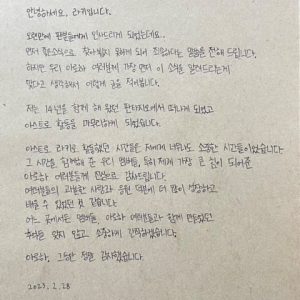 안녕하세요, 라키입니다.
오랜만에 팬분들에게 인사드리게 되었는데요..
먼저 좋은소식으로 찾아뵙지 못하게 되어 죄송하다는 말씀을 전해 드립니다.
하지만 우리 아로하 여러분께 가장 먼저 이 소식을 알려드리는게
맞다고 생각해서 이렇게 글을 적어봅니다.
저는 14년을 함께 해 왔던 판타지오에서 떠나게 되었고
아스트로 활동을 마무리하게 되었습니다.
아스트로 라키로 활동했던 시간들은 저에게 너무나도 소중한 시간들이었습니다
그 시간을 함께해 준 우리 멤버들, 특히 제게 가장 큰 힘이 되어준
아로하 여러분들께 진심으로 감사드립니다.
여러분들의 과분한 사랑과 응원 덕분에 더 많이 성장하고
배울 수 있었던 것 같습니다.
어느 곳에서든 멤버들, 아로하 여러분들과 함께 만들었던
추억을 잊지 않고 소중하게 간직하겠습니다.
아로하, 그동안 정말 감사했습니다.
2023. 2. 28